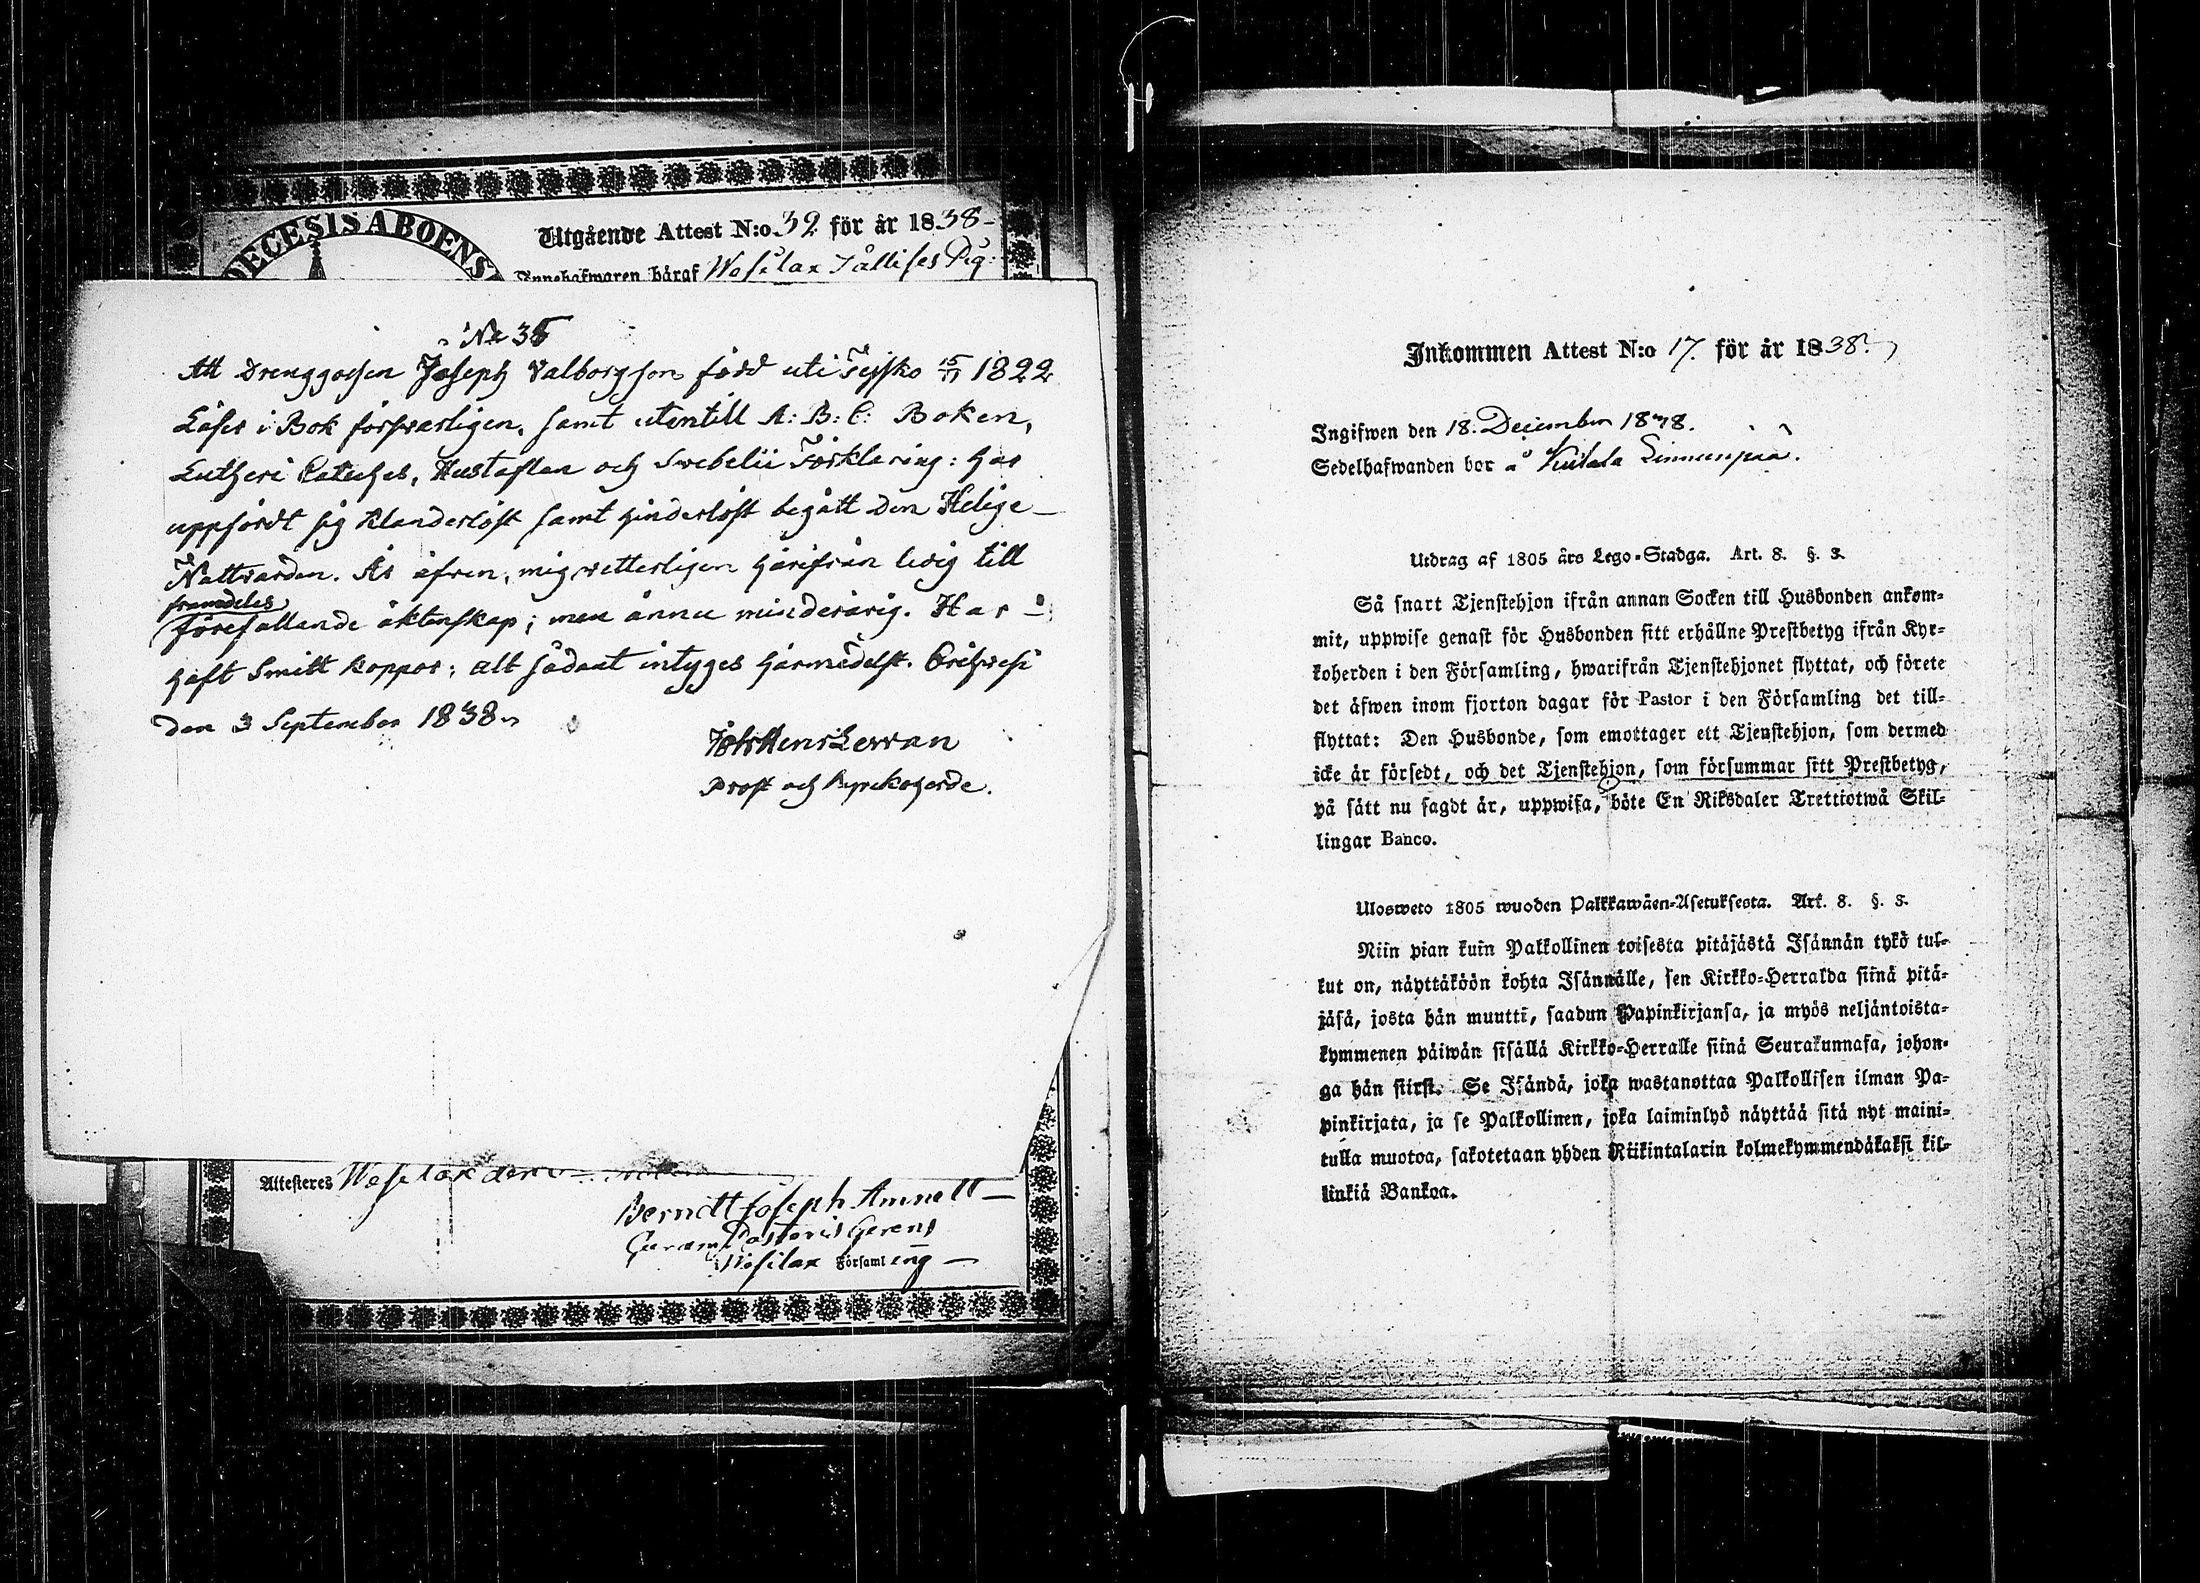 DECESIS ABOENS
Utgående Attest N:o 32 för år 1838
Innehafwaren häraf Wesilax
No 35
Att Drenggossen Joseph Valborgson född uti Teisko 15/11 1822
Läser i Bok försvarligen, samt utantill A: B: C: Boken,
Lutheri Cateches, Hustaflan och Svebelii Förklaring: har
uppfördt sig klanderlöst samt hinderlöst begått Den Helige
Nattvarden. Är äfven, mig vetterligen härifrån ledig till
framdeles
förefallande äktenskap; men ännu minderårig. Har
haft Smitt koppor; alt sådant intyges härmedelst. Orihvesi
den 3 September 1838
Prost och Kyrckoherde.
Attesteras Wesilax den
Berndt Joseph
Pastoris Gerens
i Wesilax Församling
Inkommen Attest N:o 17. för år 1838.
Ingifwen den 18. December 1838.
Sedelhafwanden bor å
Utdrag af 1805 års Lego-Stadga. Art. 8. §. 3.
Så snart Tjenstehjon ifrån annan Socken till Husbonden ankom-
mit, uppwise genast för Husbonden sitt erhållne Prestbetyg ifrån Kyr-
koherden i den Församling, hwarifrån Tjenstehjonet flyttat, och förete
det äfwen inom fjorton dagar för Pastor i den Församling det till-
flyttat: Den Husbonde, som emottager ett Tjenstehjon, som dermed
icke är försedt, och det Tjenstehjon, som försummar sitt Prestbetyg,
på sätt nu sagdt är, uppwisa, böte En Riksdaler Trettiotwå Skil-
lingar Banco.
Uloswето 1805 wuoden Palkkawäen-Asetuksesta. Art. 8. §. 3.
Niin pian kuin Palkollinen toisesta pitäjästä Isännän tykö tul-
kut on, näyttäköön kohta Isännälle, sen Kirkko-Herralda siinä pitä-
jäsä, josta hän muutti, saadun Papinkirjansa, ja myös neljäntoista-
kymmenen päiwän sisällä Kirkko-Herralle siinä Seurakunnasa, johon-
ga hän siirsi. Se Isändä, joka wastanottaa Palkollisen ilman Pa-
pinkirjata, ja se Palkollinen, joka laiminlyö näyttää sitä nyt maini-
tulla muotoa, sakotetaan yhden Riikintalarin kolmekymmendäkaksi kil-
linkiä Bankoa.